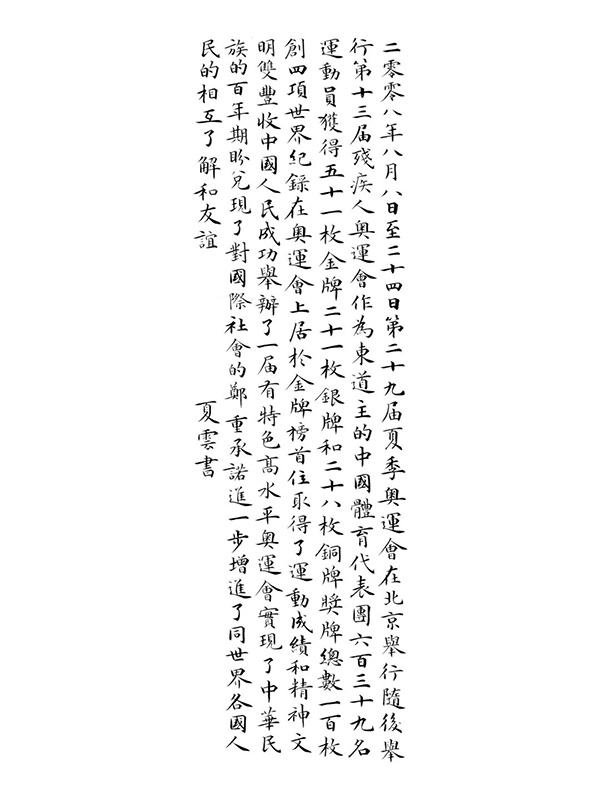 二零零八年八月八日至二十四日第二十九届夏季奧運會在北京舉行隨後舉
行第十三届殘疾人奧運會作為東道主的中國體育代表團六百三十九名
運動員獲得五十一枚金牌二十一枚銀牌和二十八枚銅牌獎牌總數一百枚
創四項世界紀錄在奧運會上居於金牌榜首位取得了運動成績和精神文
明雙豐收中國人民成功舉辦了一届有特色高水平奧運會實現了中華民
族的百年期盼兌現了對國際社會的鄭重承諾進一步增進了同世界各國人
民的相互了解和友誼
夏雲書